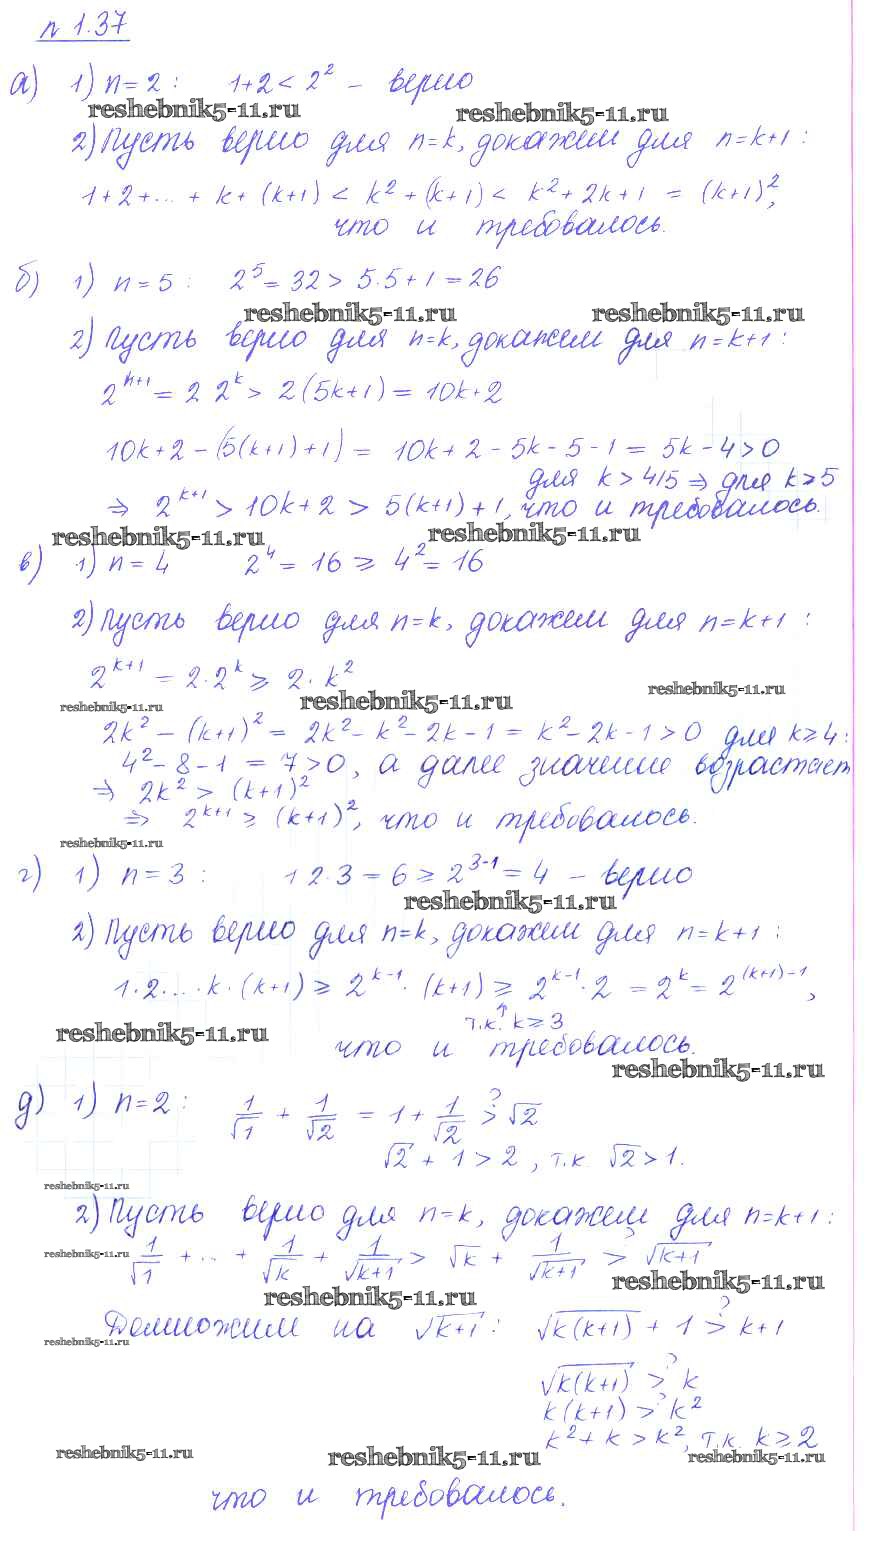 n 1.37
а) 1) n=2: 1+2 < 2² – верно
reshebnik5-11.ru reshebnik5-11.ru
2) Пусть верно для n=k, докажем для n=k+1:
1+2+...+k+(k+1) < k²+(k+1) < k²+2k+1 = (k+1)²,
что и требовалось.
б) 1) n=5: 2⁵=32 > 5·5+1=26
reshebnik5-11.ru reshebnik5-11.ru
2) Пусть верно для n=k, докажем для n=k+1:
2ⁿ⁺¹ = 2 2ᵏ > 2(5k+1) = 10k+2
10k+2-(5(k+1)+1) = 10k+2-5k-5-1 = 5k-4>0
для k>4/5 ⇒ для k≥5
⇒ 2ᵏ⁺¹ > 10k+2 > 5(k+1)+1, что и требовалось.
reshebnik5-11.ru reshebnik5-11.ru
в) 1) n=4 2⁴=16 ≥ 4²=16
2) Пусть верно для n=k, докажем для n=k+1:
2ᵏ⁺¹ = 2·2ᵏ ≥ 2·k²
reshebnik5-11.ru reshebnik5-11.ru reshebnik5-11.ru
2k²-(k+1)² = 2k²-k²-2k-1 = k²-2k-1>0 для k≥4:
4²-8-1 = 7>0, а далее значение возрастает
⇒ 2k² > (k+1)²
⇒ 2ᵏ⁺¹ ≥ (k+1)², что и требовалось.
reshebnik5-11.ru
г) 1) n=3: 1 2·3=6 ≥ 2³⁻¹=4 – верно
reshebnik5-11.ru
2) Пусть верно для n=k, докажем для n=k+1:
1·2·...·k·(k+1) ≥ 2ᵏ⁻¹·(k+1) ≥ 2ᵏ⁻¹·2 = 2ᵏ = 2⁽ᵏ⁺¹⁾⁻¹,
т.к. k≥3
reshebnik5-11.ru
что и требовалось.
reshebnik5-11.ru
д) 1) n=2: 1/√1 + 1/√2 = 1 + 1/√2 >? √2
√2+1>2, т.к √2>1.
reshebnik5-11.ru
2) Пусть верно для n=k, докажем для n=k+1:
reshebnik5-11.ru 1/√1 + ... + 1/√k + 1/√(k+1) > √k + 1/√(k+1) >? √(k+1)
reshebnik5-11.ru reshebnik5-11.ru
Домножим на √(k+1): √(k(k+1)) + 1 >? k+1
reshebnik5-11.ru
√(k(k+1)) >? k
k(k+1) >? k²
k²+k > k², т.к. k≥2
reshebnik5-11.ru reshebnik5-11.ru reshebnik5-11.ru
что и требовалось.